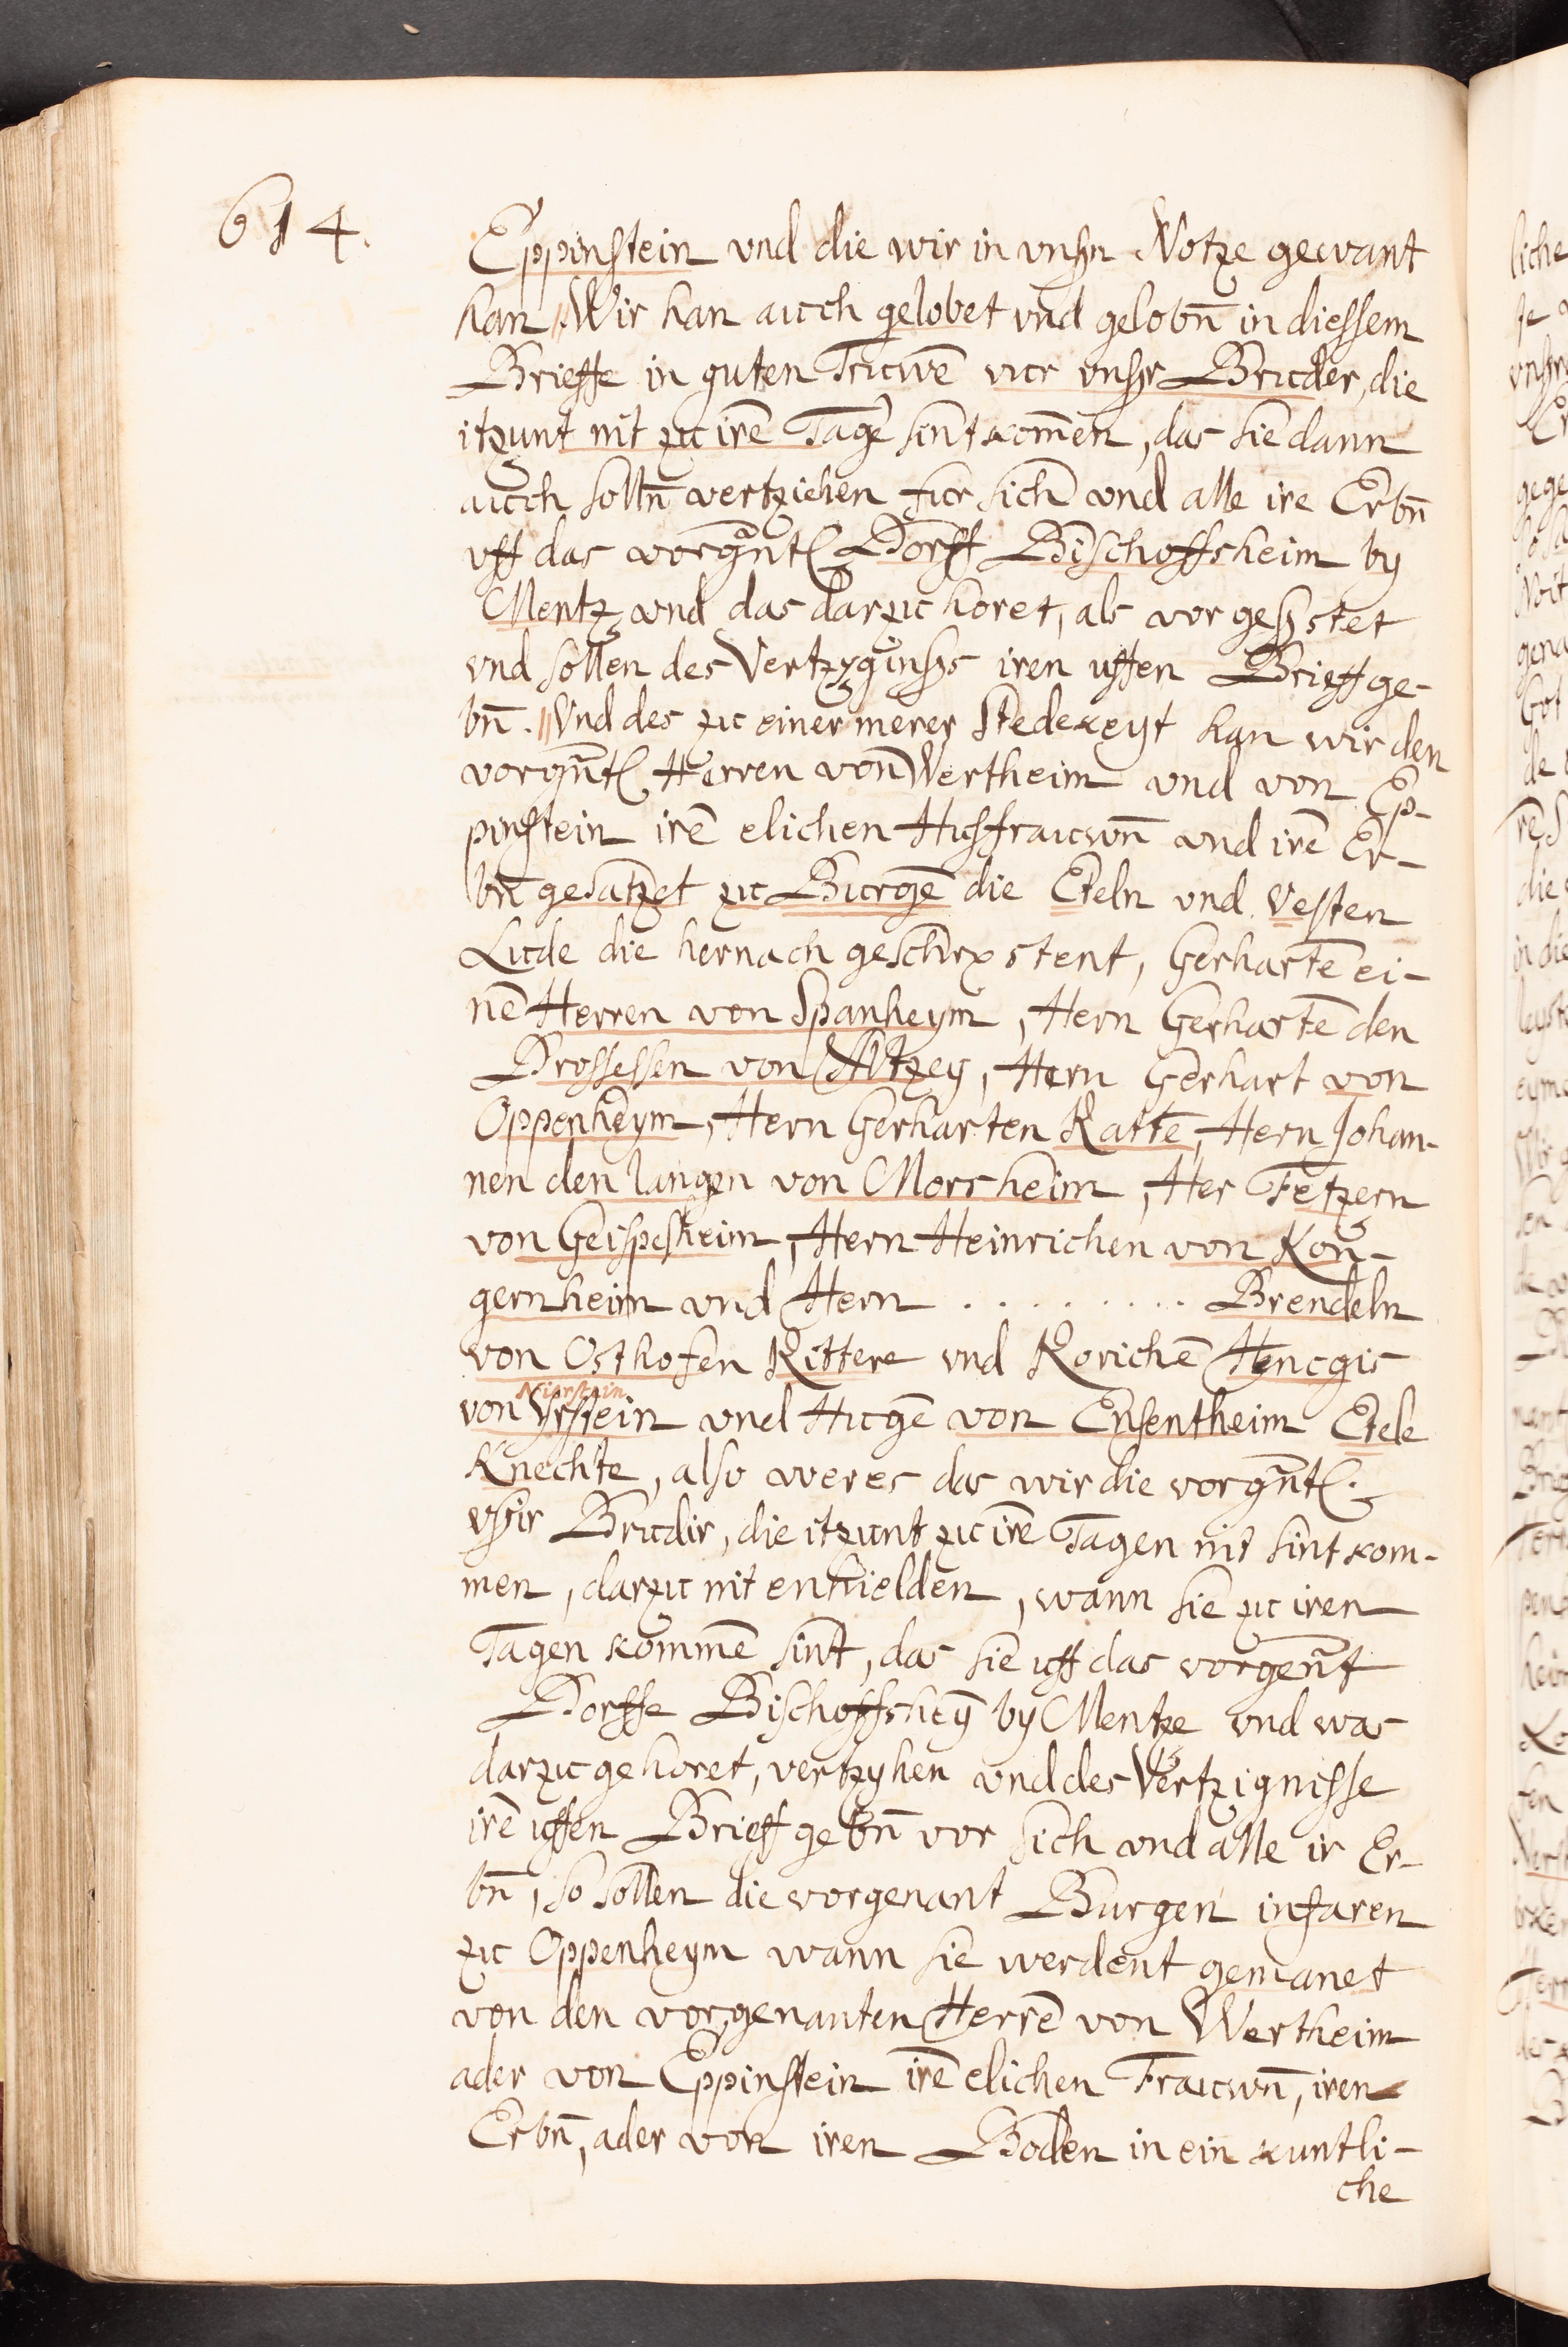 614.
Eppinstein vnd die wir in vnßn Notze gewant
han // Wir han auch gelobet vnd gelobn̄ in diessem
Brieffe in guten Truwē vur vnßr Bruder, die
itzunt nit zu irē Tagē sint komēn, das sie dann
auch solln̄ vertziehen fur sich vnd alle ire Erbn̄
vff das vorgn̄t Dorff Bischoffsheim by
Mentz vnd das darzu horet, als vor geß stet
vnd sollen des Vertzyginßs iren uffen Brieff ge-
bn̄. // Vnd des zu einer merer Stedekeyt han wir den
vorgn̄t Herren von Wertheim vnd von Ep-
pinstein irē elichen Husfrauwn̄ vnd irē Er-
bn̄ gesatzet zu Burgē die Eteln vnd Vesten
Lude die hernach geschrx stent, Gerhartē ei-
nē Herren von Spanheym, Hern Gerhartē den
Drossessen von Altzey, Hern Gerhart von
Oppenheym, Hern Gerharten Rattē, Hern Johan-
nen den langen von Morsheim, Her Fetzern
von Geispesheim, Hern Heinrichen von Kon-
gernheim vnd Hern . . . . . . . . . Brendeln
von Osthofen Rittere vnd Rorichē Hencgis
Nierstein
von Yrstein vnd Hugē von Ensentheim Etele
Knechte, also weres das wir die vorgn̄t.
vßir Brudir, die itzunt zu irē Tagen nit sint kom-
men, darzu nit enthielden, wann sie zu iren
Tagen kommē sint, das sie uff das vorgen̄t
Dorffe Bischoffsheȳ by Mentze vnd was
darzu gehoret, vertzyhen vnd des Vertzignisse
irē uffen Brieff gebn̄ vor sich vnd alle ir Er-
bn̄, so sollen die vorgenant Burgen infaren
zu Oppenheym wann sie werdent gemanet
von den vorgenanten Herrē von Wertheim
ader von Eppinstein irē elichen Frauwn̄, iren
Erbn̄, ader von iren Boden in ein kuntli-
che